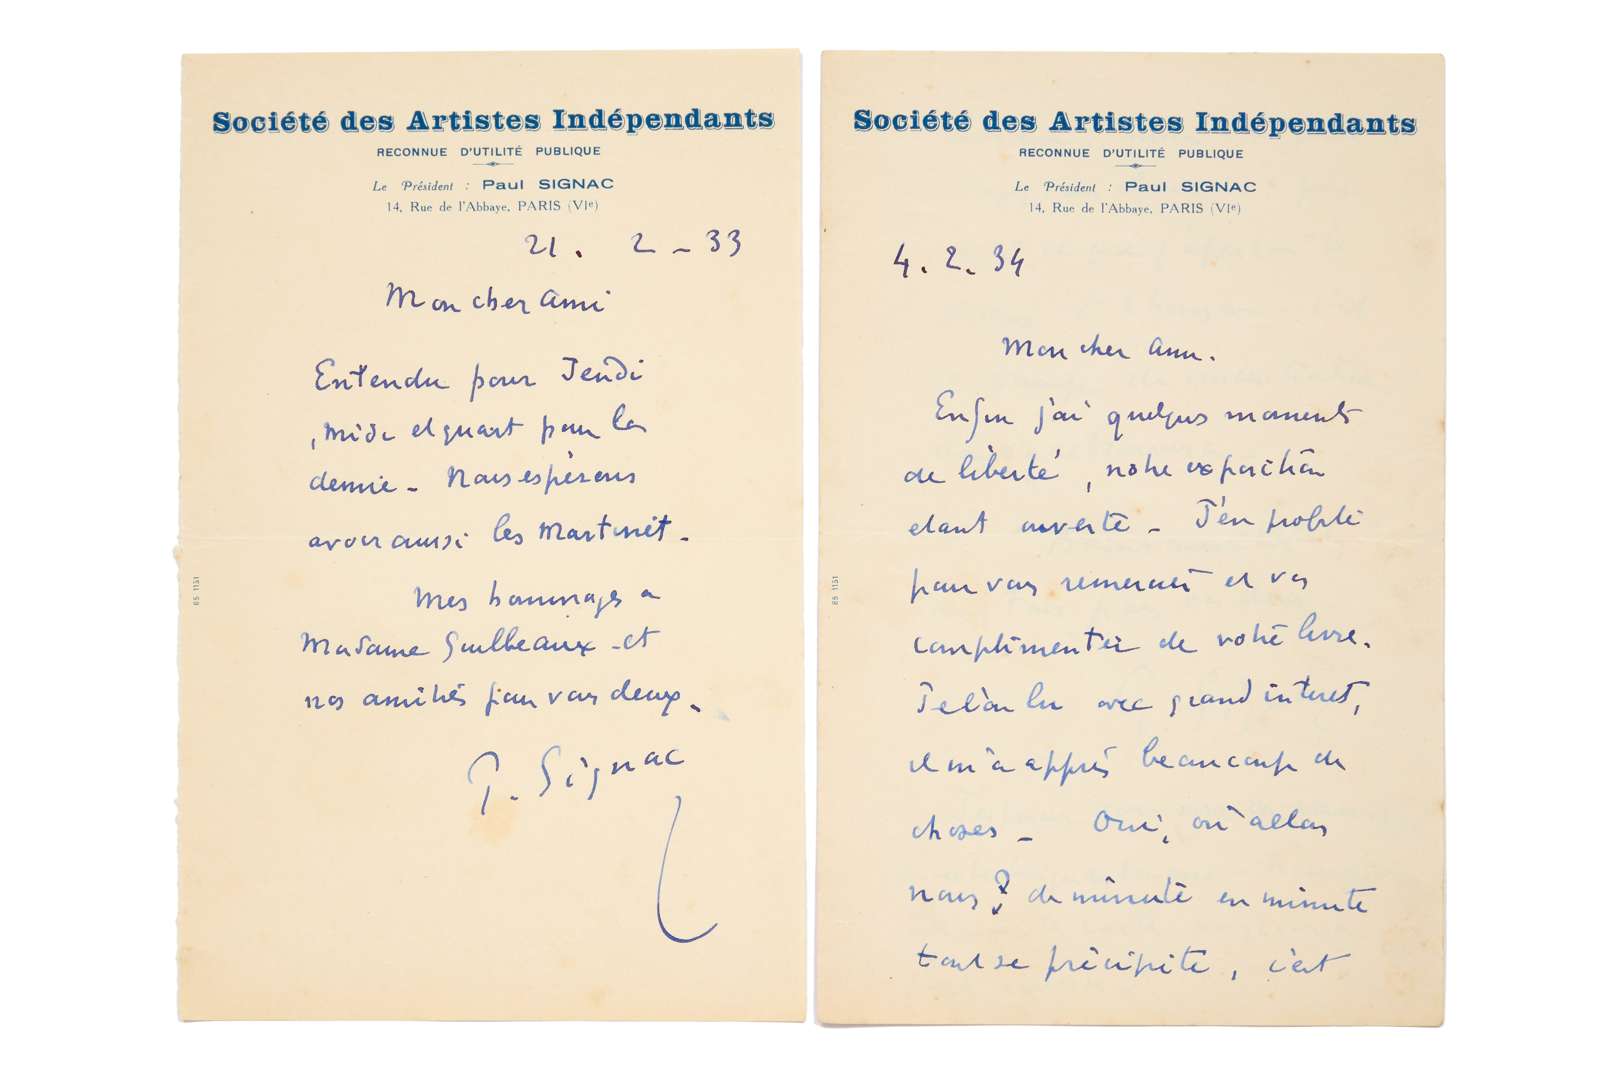 Société des Artistes Indépendants
RECONNUE D'UTILITÉ PUBLIQUE
Le Président : Paul SIGNAC
14, Rue de l'Abbaye, PARISS (VIe)
21. 2 - 33
Mon cher ami
Entendu pour Jeudi
, midi et quart pour la
demie - Nous espérons
avoir aussi les Martinet -
Mes hommages a
Madame Guilbeaux - et
nos amitiés pour vous deux.
P. Signac
85 1151
Société des Artistes Indépendants
RECONNUE D'UTILITÉ PUBLIQUE
Le Président : Paul SIGNAC
14, Rue de l'Abbaye, PARIS (VIe)
4. 2. 34
Mon cher ami.
Enfin j'ai quelques moments
de liberté, notre exposition
etant ouverte - J'en profite
pour vous remercier et vous
complimenter de votre livre.
Je l'ai lu avec grand interet,
il m'a appris beaucoup de
choses - Oui, où allons
nous ? de minute en minute
tout se précipite, c'est
85 1151